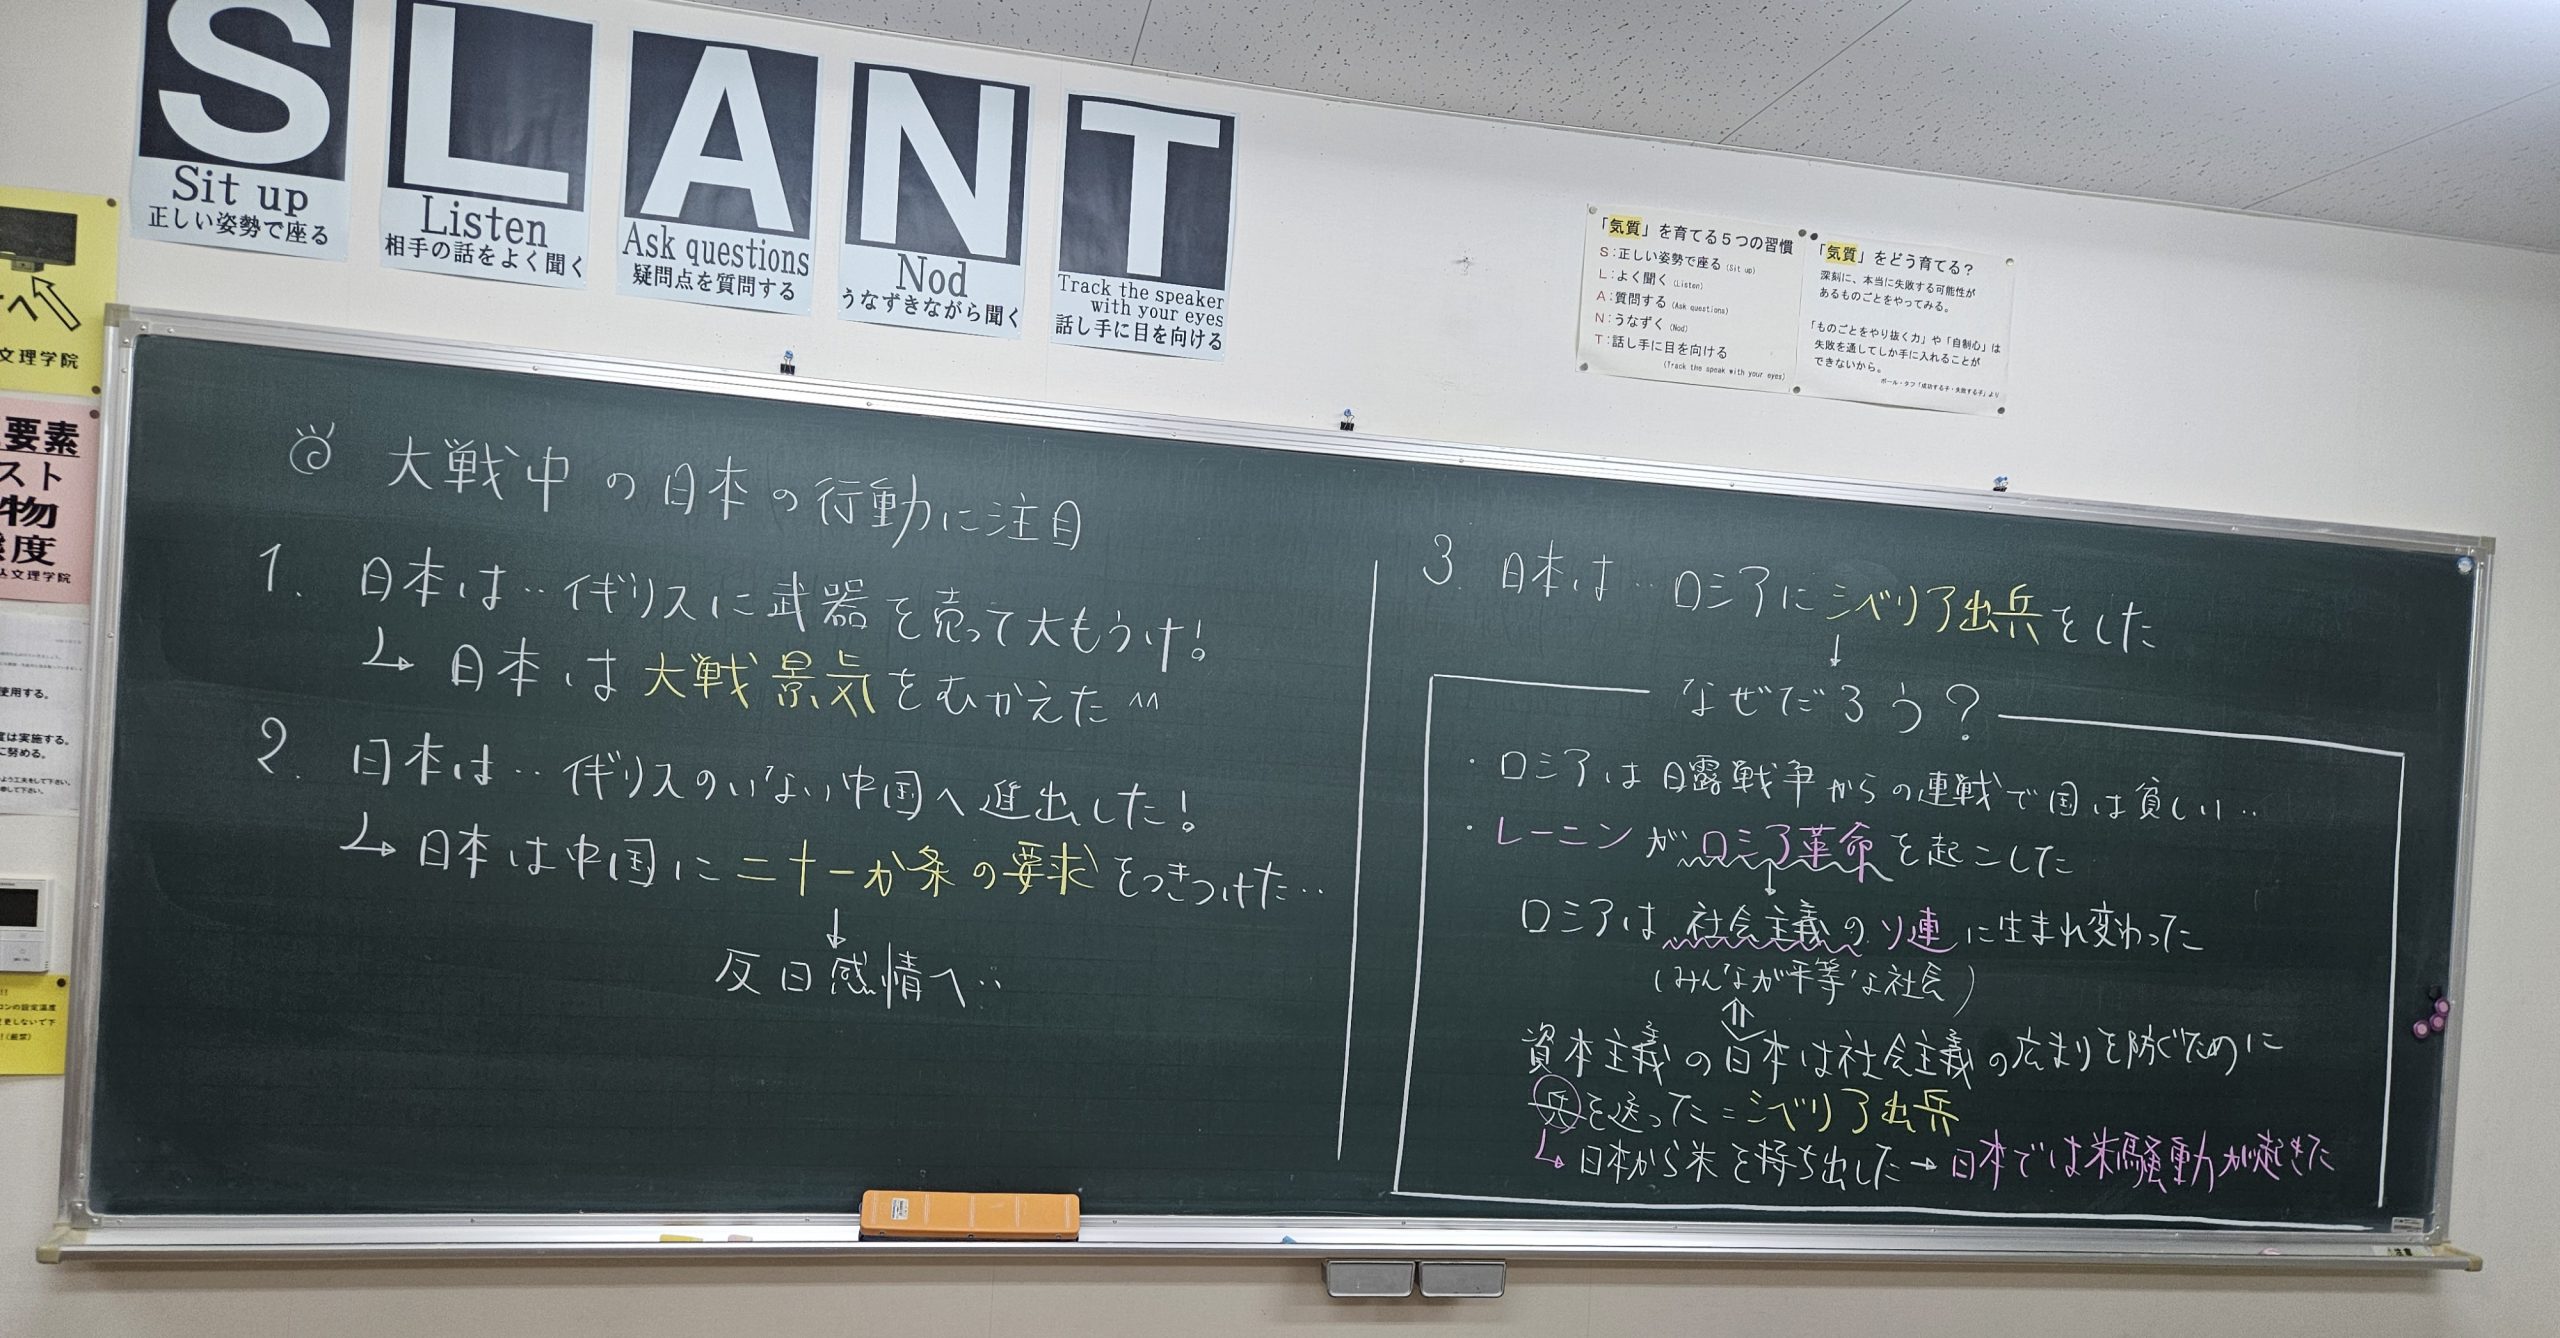 SLANT
Sit up
正しい姿勢で座る
Listen
相手の話をよく聞く
Ask questions
疑問点を質問する
Nod
うなずきながら聞く
Track the speaker
with your eyes
話し手に目を向ける
「気質」を育てる５つの習慣
S：正しい姿勢で座る (Sit up)
L：よく聞く (Listen)
A：質問する (Ask questions)
N：うなずく (Nod)
T：話し手に目を向ける
(Track the speak with your eyes)
「気質」をどう育てる？
深刻に、本当に失敗する可能性が
あるものごとをやってみる。
「ものごとをやり抜く力」や「自制心」は
失敗を通してしか手に入れることが
できないから。
ポール・タフ「成功する子・失敗する子」より
へ
文理学院
要素
スト
物
度
文理学院
使用する。
度は実施する。
に努める。
よう工夫をして下さい。
して下さい。
!!
コンの設定温度
更しないで下
!(厳禁)
◎ 大戦中の日本の行動に注目
1. 日本は‥イギリスに武器を売って大もうけ!
↳ 日本は大戦景気をむかえた ^^
2. 日本は‥イギリスのいない中国へ進出した!
↳ 日本は中国に二十一か条の要求をつきつけた‥
↓
反日感情へ‥
3. 日本は‥ロシアにシベリア出兵をした
↓
なぜだろう?
・ロシアは日露戦争からの連戦で国は貧しい‥
・レーニンがロシア革命を起こした
↓
ロシアは社会主義のソ連に生まれ変わった
(みんなが平等な社会)
⇕
資本主義の日本は社会主義の広まりを防ぐために
兵を送った=シベリア出兵
↳ 日本から米を持ち出した→日本では米騒動が起きた
注意